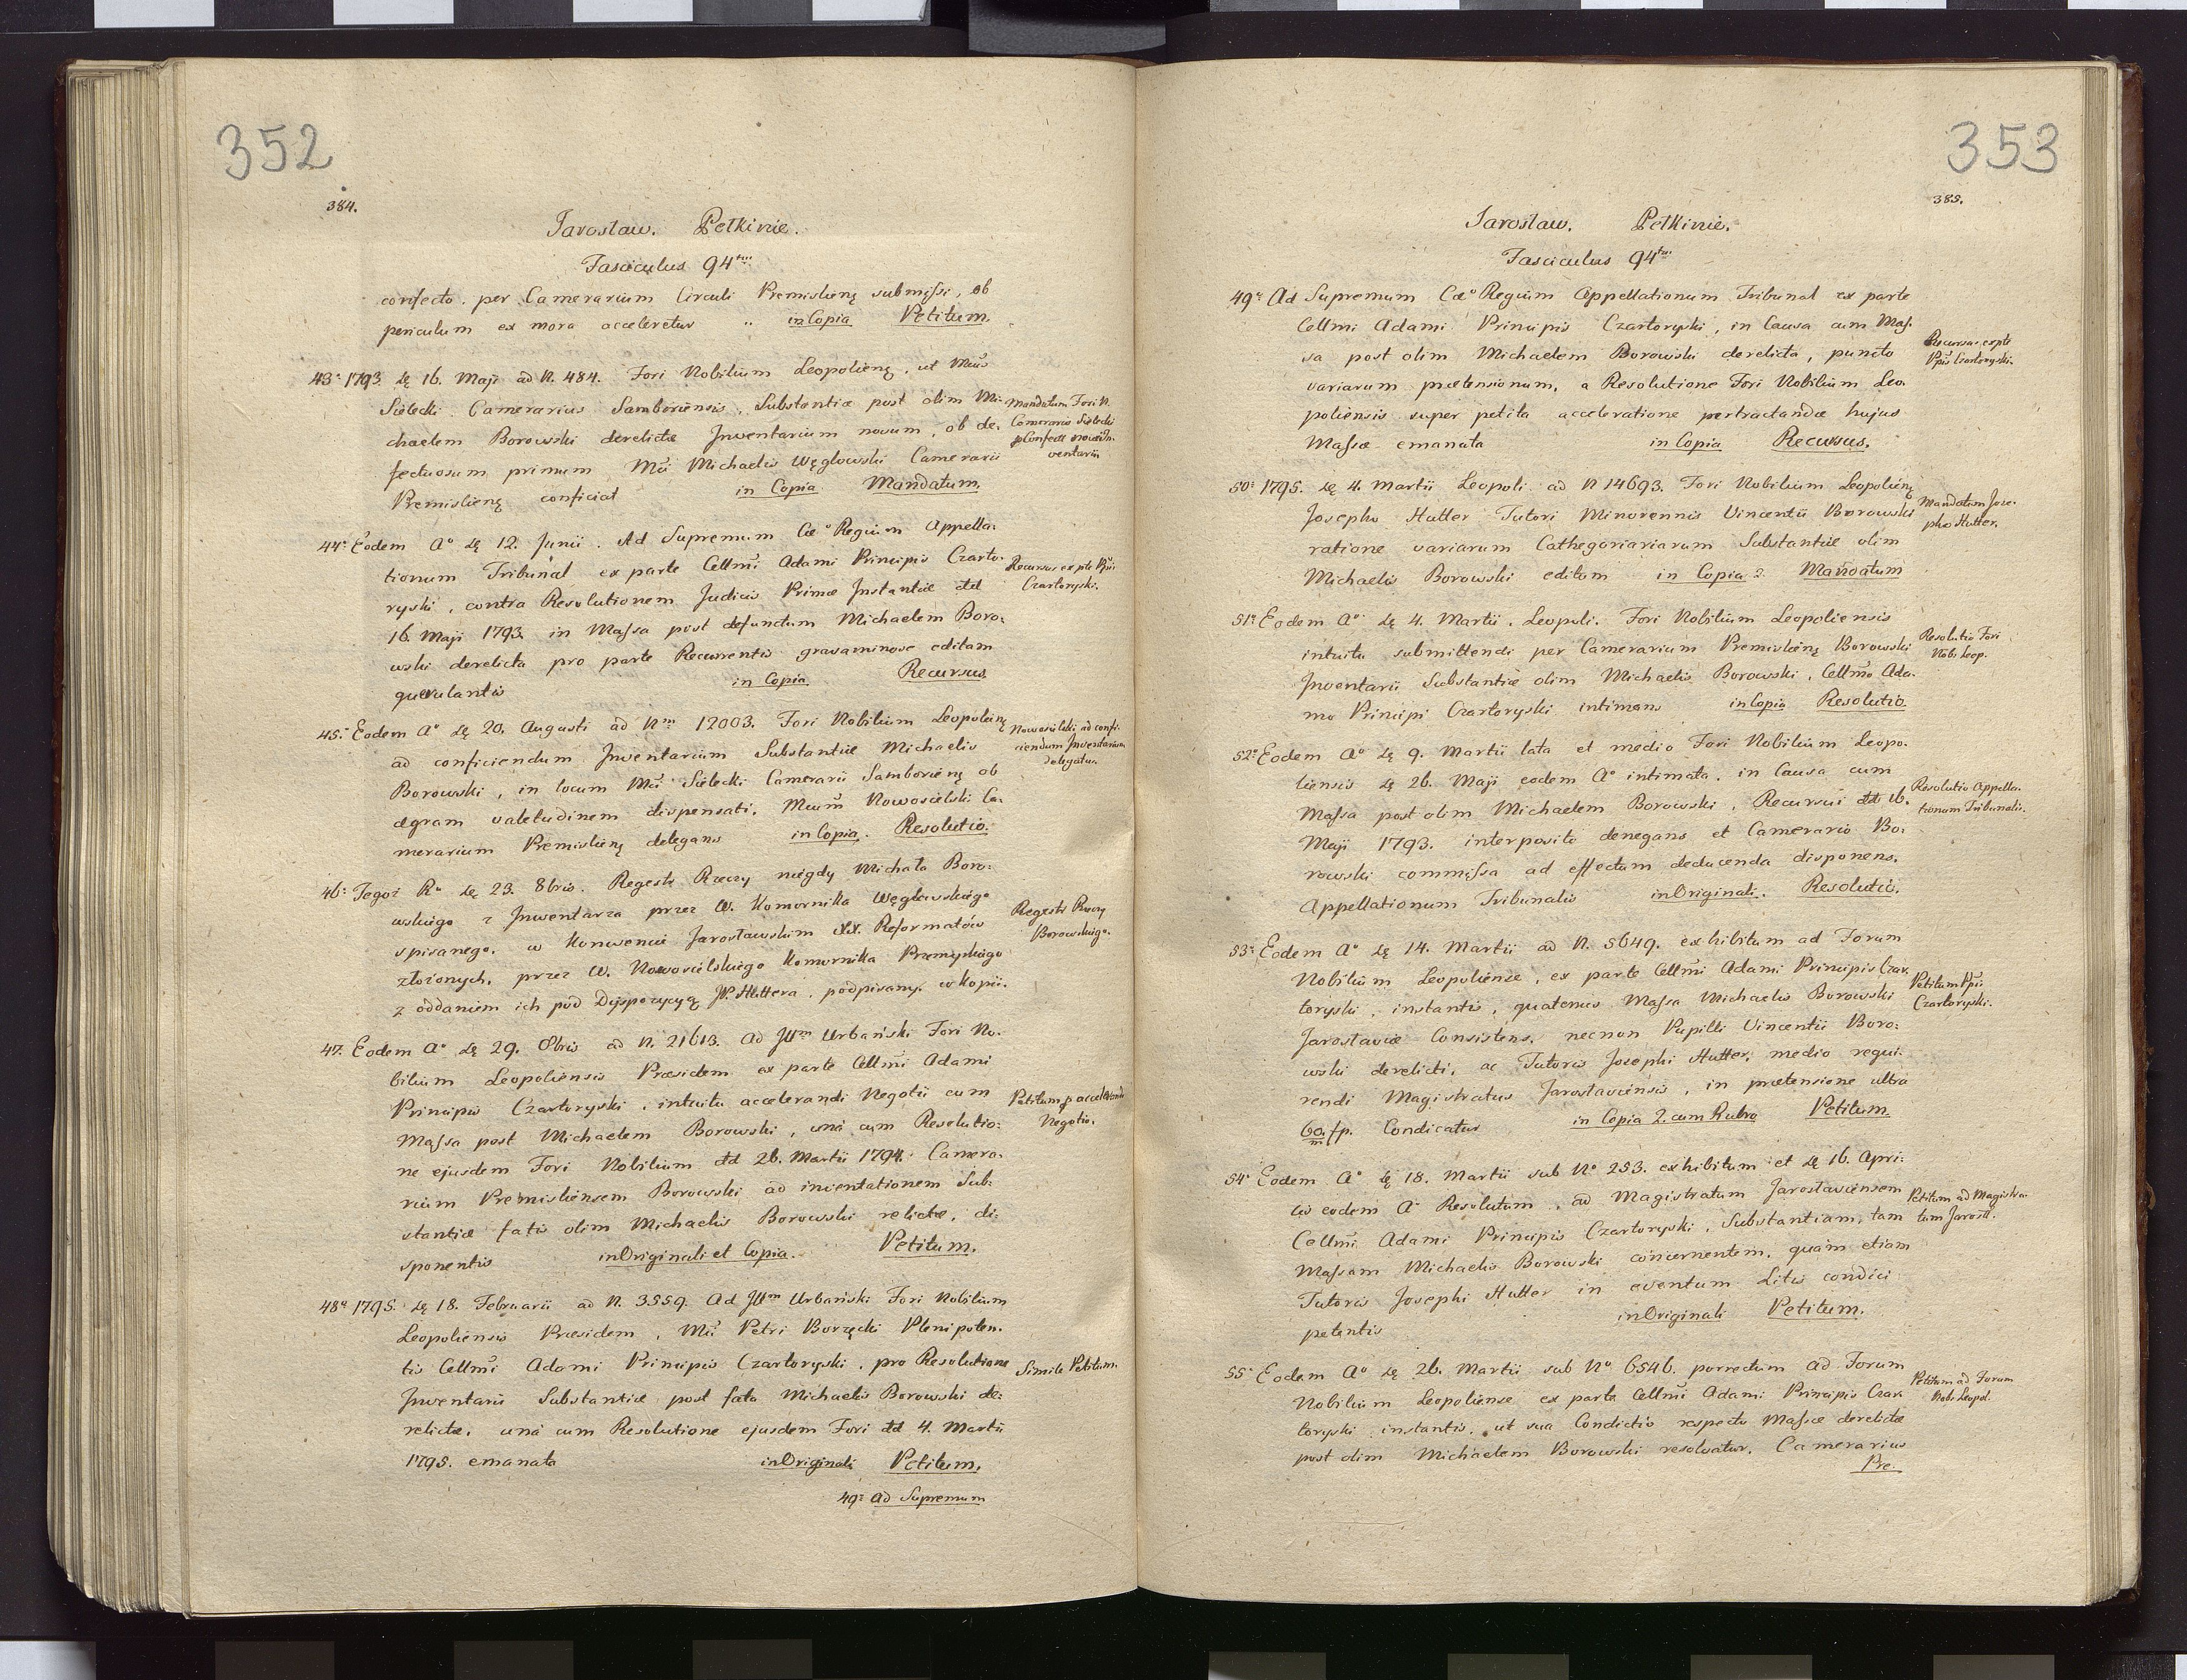 352
384.
Jarosław. Pełkinie.
Fasciculus 94tus
confecto. per Camerarium Circuli Premislienę submissi, ob
periculum ex mora acceleretur " in Copia Petitum.
43o 1793 Dę 16. Maji ad N. 484. Fori Nobilium Leopolienę, ut Mcus
Sielecki Camerarius Samboriensis, Substantiæ post olim Mi-
chaelem Borowski derelictæ Inventarium novum, ob de-
fectuosum primum Mci Michaelis Węglowski Camerarii
Premislienę conficiat in Copia Mandatum.
Mandatum Fori N.
Camerario Sielecki
p Confect novi In-
ventarii
44o Eodem Ao Dę 12. Junii. Ad Supremum Cæo Regium Appella-
tionum Tribunal ex parte Cellmi Adami Principis Czarto-
ryski, contra Resolutionem Judicii Primæ Instantiæ dd
16. Maji 1793. in Massa post defunctum Michaelem Boro-
wski derelicta pro parte Recurrentis gravaminose editam
querulantis in Copia. Recursus.
Recursus ex pte Ppis
Czartoryski.
45o Eodem Ao Dę 20. Augusti ad Nm 12003. Fori Nobilium Leopolienę
ad conficiendum Inventarium Substantiæ Michaelis
Borowski, in locum Mci Sielecki Camerarii Samborienę ob
ægram valetudinem dispensati, Mcum Nowosielski Ca-
merarium Premislienę delegans in Copia. Resolutio.
Nowosielski ad confi-
ciendum Inventarium
delegatur.
46o Tegoż Ru Dę 23. 8bris. Regestr Rzeczy niegdy Michała Boro-
wskiego z Inwentarza przez W. Komornika Węglowskiego
spisanego, w Konwencie Jarosławskim XX. Reformatów
złożonych, przez W. Nowosielskiego Komornika Przemyskiego
z oddaniem ich pod Dyspozycyą JP. Huttera, podpisany. w Kopii.
Regestr Rzeczy
Borowskiego.
47. Eodem Ao Dę 29. 8bris ad N. 21613. Ad Jllm Urbański Fori No-
bilium Leopoliensis Præsidem ex parte Cellmi Adami
Principis Czartoryski, intuitu accelerandi Negotii cum
Massa post Michaelem Borowski, unà cum Resolutio-
ne ejusdem Fori Nobilium dd 26. Martii 1794. Camera-
rium Premisliensem Borowski ad inventationem Sub-
stantiæ fatis olim Michaelis Borowski relictæ, di-
sponentis in Originali et Copia. Petitum.
Petitum p accelerando
Negotio.
48o 1795. Dę 18. Februarii ad N. 3559. Ad Jllm Urbański Fori Nobilium
Leopoliensis Præsidem, Mci Petri Borzęcki Plenipoten-
tis Cellmi Adami Principis Czartoryski, pro Resolutione
Inventarii Substantiæ post fata Michaelis Borowski de-
relictæ, unà cum Resolutione ejusdem Fori dd 4. Martii
1795. emanata in Originali Petitum.
Simile Petitum.
49o Ad Supremum
353
385.
Jarosław. Pełkinie.
Fasciculus 94tus
49o Ad Supremum Cæo Regium Appellationum Tribunal ex parte
Cellmi Adami Principis Czartoryski, in Causa cum Mas-
sa post olim Michaelem Borowski derelicta, puncto
variarum prætensionum, a Resolutione Fori Nobilium Leo-
poliensis super petita acceleratione pertractandæ hujus
Massæ emanata in Copia Recursus.
Recursus ex pte
Ppis Czartoryski.
50o 1795. Dę 4. Martii Leopoli ad N 14693. Fori Nobilium Leopolienę
Josepho Hutter Tutori Minorennis Vincentii Borowski
ratione variarum Cathegoriariarum Substantiæ olim
Michaelis Borowski editum in Copia 2. Mandatum
Mandatum Jose-
pho Hutter.
51o Eodem Ao Dę 4. Martii. Leopoli. Fori Nobilium Leopoliensis
intuitu submittendi per Camerarium Premislienę Borowski
Inventarii Substantiæ olim Michaelis Borowski, Cellmo Ada-
mo Principi Czartoryski intimans in Copia Resolutio.
Resolutio Fori
Nob. Leop.
52o Eodem Ao Dę 9. Martii lata et medio Fori Nobilium Leopo-
liensis Dę 26. Maji eodem Ao intimata, in Causa cum
Massa post olim Michaelem Borowski, Recursui dd 16.
Maji 1793. interposito denegans et Camerario Bo-
rowski commissa ad effectum deducenda disponens,
Appellationum Tribunalis in Originali. Resolutio.
Resolutio Appella-
tionum Tribunalis.
53o Eodem Ao Dę 14. Martii ad N. 5649. exhibitum ad Forum
Nobilium Leopoliense, ex parte Cellmi Adami Principis Czar-
toryski, instantis, quatenus Massa Michaelis Borowski
Jaroslaviæ Consistens, necnon Pupilli Vincentii Boro-
wski derelicti, ac Tutoris Josephi Hutter, medio requi-
rendi Magistratus Jaroslaviensis, in prætensione ultra
60/m fp. Condicatur in Copia 2. cum Rubro Petitum.
Petitum Ppis
Czartoryski.
54o Eodem Ao Dę 18. Martii sub No 253. exhibitum et Dę 16. Apri-
lis eodem Ao Resolutum, ad Magistratum Jaroslaviensem
Cellmi Adami Principis Czartoryski, Substantiam, tam
Massam Michaelis Borowski concernentem, quàm etiam
Tutoris Josephi Hutter in eventum Litis condici
petentis in Originali Petitum.
Petitum ad Magistra-
tum Jarosl.
55o Eodem Ao Dę 26. Martii sub No 6546. porrectum ad Forum
Nobilium Leopoliense ex parte Cellmi Adami Principis Czar-
toryski instantis, ut sua Condictio respectu Massæ derelictæ
post olim Michaelem Borowski resolvatur, Camerarius
Pre.
Petitum ad Forum
Nob. Leopol.